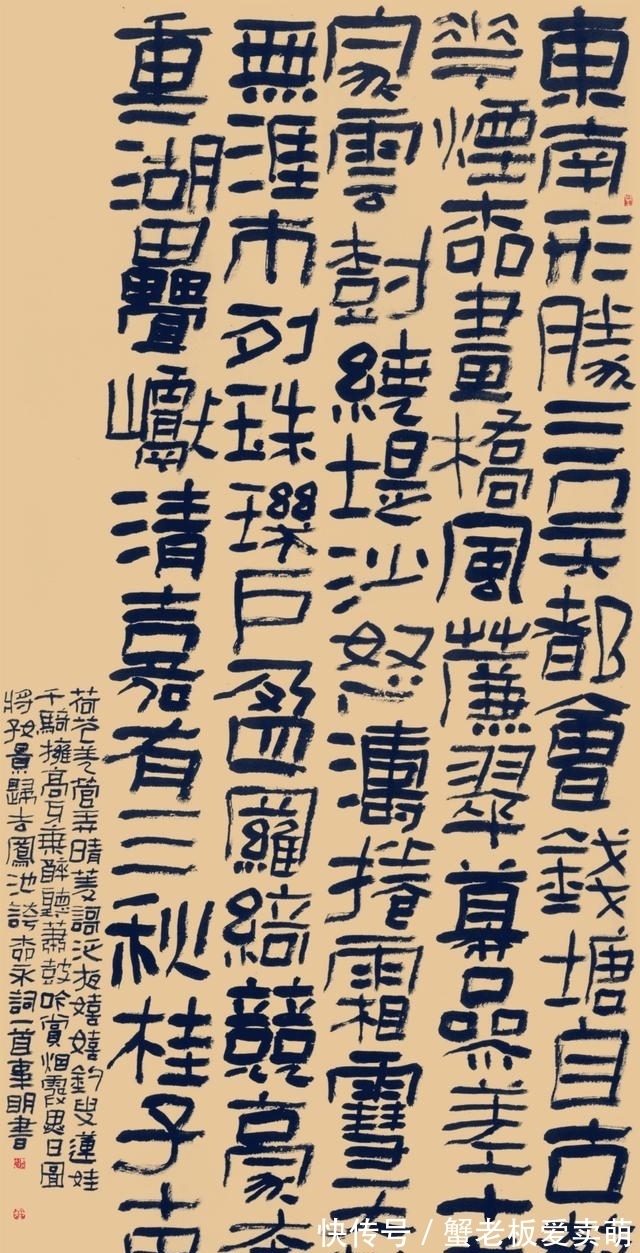 東南形勝三吳都會錢塘自古
華煙柳畫橋風簾翠幕參差十
家雲樹繞堤沙怒濤捲霜雪天
無涯市列珠璣戶盈羅綺競豪
重湖疊巘清嘉有三秋桂子十
荷花羌管弄晴菱謌泛夜嬉嬉釣叟蓮娃
千騎擁高牙乘醉聽蕭鼓吟賞烟霞異日圖
將好景歸去鳳池誇柳永詞一首東明書
快传号 / 蟹老板爱卖萌